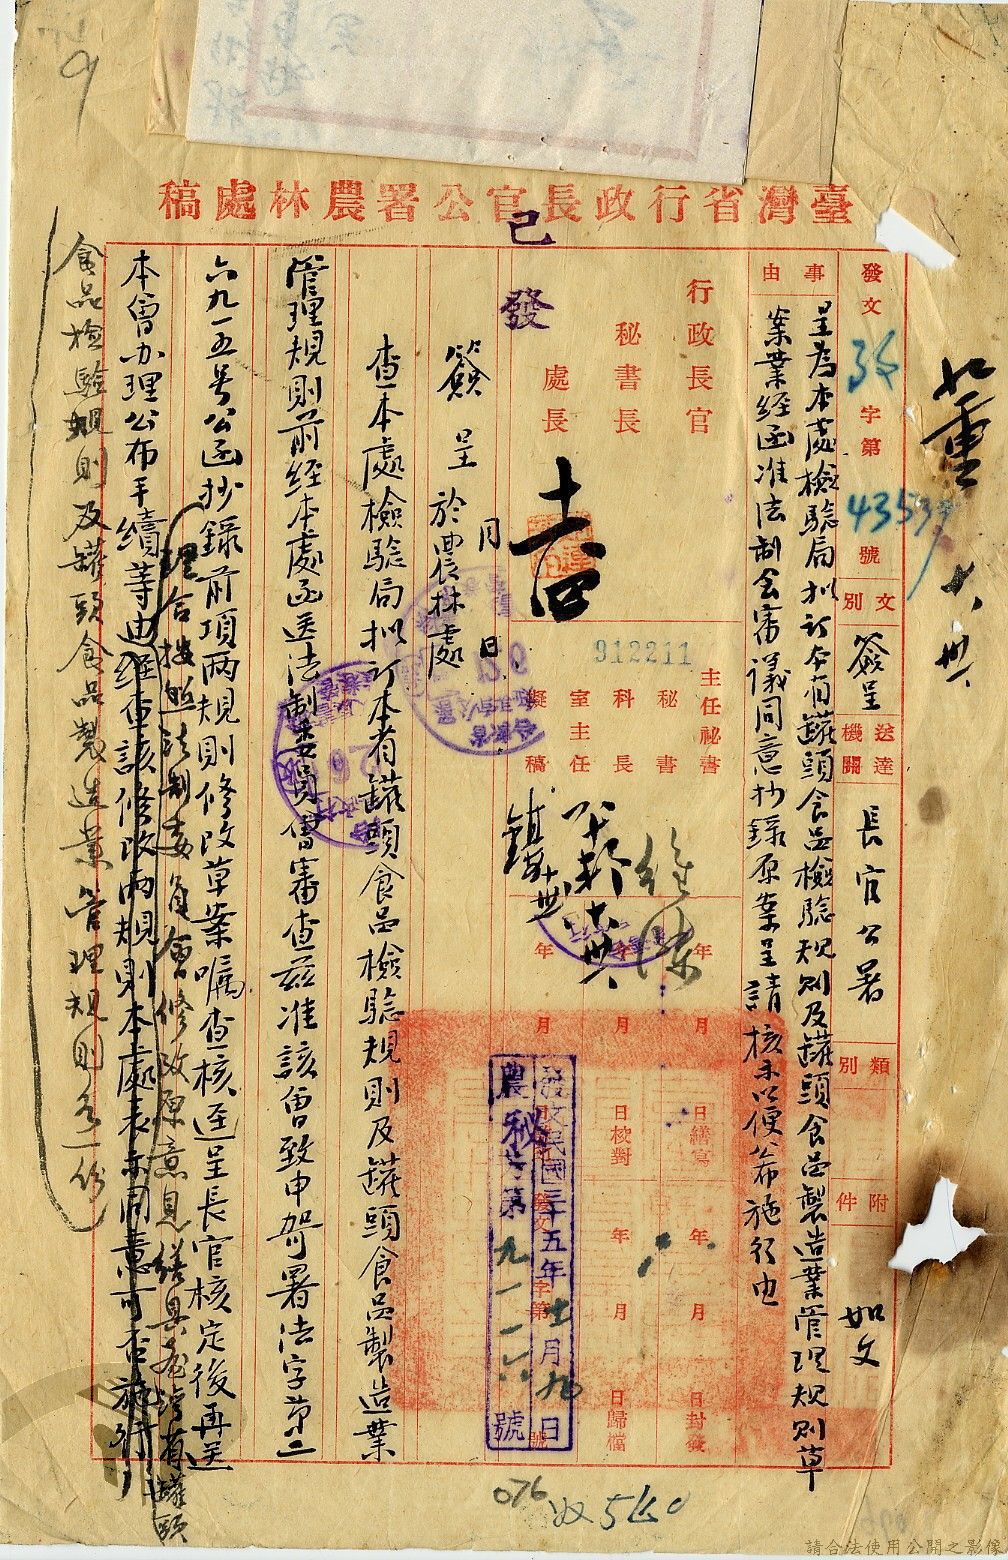 臺灣省行政長官公署農林處稿
發文 字第 43537 號
文別 簽呈
送達機關 長官公署
類別
附件 如文
事由
呈為本處檢驗局拟訂本省罐頭食品檢驗規則及罐頭食品製造業管理規則草
案業經函准法制会審議同意抄錄原案呈請核示以便公布施行由
行政長官
秘書長
處長
已發
912211
主任祕書
秘書
科長
室主任
擬稿
年 月 日繕寫
年 月 日校對
年 月 日封發
年 月 日歸檔
發文民國三十五年 十一月 九日
農秘 字第 九一一六 號
簽呈 月 日
於農林處
查本處檢驗局拟訂本省罐頭食品檢驗規則及罐頭食品製造業
管理規則前經本處函送法制委員會審查茲准該會致申 署法字第二
六九一五号公函抄錄前項兩規則修改草案囑查核逕呈長官核定後再送
本會办理公布手續等由經查該修改兩規則本處表示同意可否施行
理合按照法制委員會修改原意見繕具臺灣省罐頭
食品檢驗規則及罐頭食品製造業管理規則各一份
076
請合法使用公開之影像